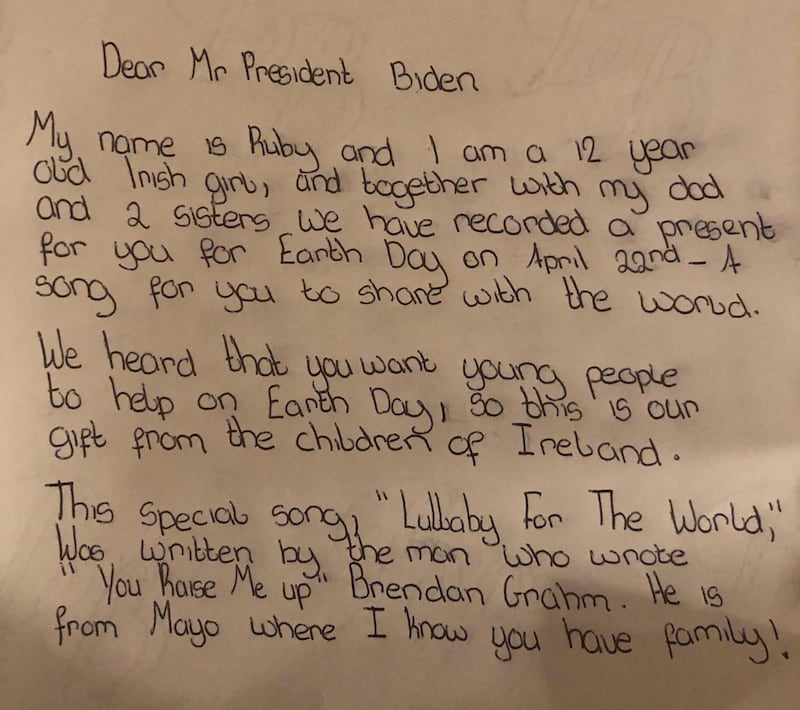 Dear Mr President Biden
My name is Ruby and I am a 12 year
old Irish girl, and together with my dad
and 2 sisters we have recorded a present
for you for Earth Day on April 22nd - A
song for you to share with the world.
We heard that you want young people
to help on Earth Day, so this is our
gift from the children of Ireland.
This special song, "Lullaby For The World,"
Was written by the man who wrote
"You Raise Me up" Brendan Grahm. He is
from Mayo where I know you have family!